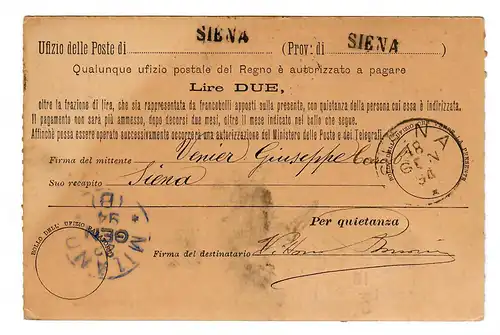 Ufizio delle Poste di SIENA (Prov: di SIENA)
Qualunque ufizio postale del Regno è autorizzato a pagare
Lire DUE,
oltre la frazione di lira, che sia rappresentata da francobolli apposti sulla presente, con quietanza della persona cui essa è indirizzata.
Il pagamento non sarà più ammesso, dopo decorsi due mesi, oltre il mese indicato nel bollo che segue.
Affinchè possa essere operato successivamente occorrerà una autorizzazione del Ministero delle Poste e dei Telegrafi.
Firma del mittente Venier Giuseppe
Suo recapito Siena
SIENA
18
GEN
94
Per quietanza
Firma del destinatario
BOLLO DELL' UFIZIO
MILANO
GEN
94